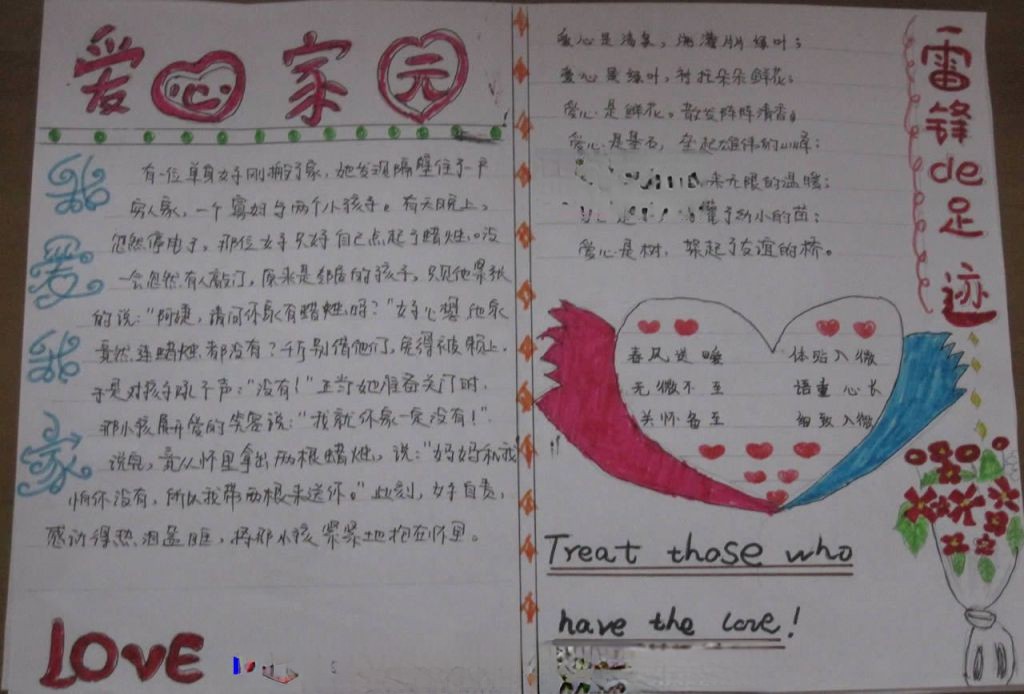 爱心家元
我爱我家
有一位单身女子刚搬了家，她发现隔壁住了一户
穷人家，一个寡妇与两个小孩子。有天晚上，
忽然停电了，那位女子只好自己点起了蜡烛。没
一会忽然有人敲门，原来是邻居的孩子，只见他紧张
的说：“阿姨，请问你家有蜡烛吗？”女子心想：他家
竟然连蜡烛都没有？千万别借他们，免得被赖上。
于是对孩子吼了声：“没有！”正当她准备关门时，
那小孩展开爱的笑容说：“我就你家一定没有！”
说完，竟从怀里拿出两根蜡烛，说：“妈妈和我
怕你没有，所以我带两根来送你。”此刻，女子自责，
感动得热泪盈眶，将那小孩紧紧地抱在怀里。
LOVE
爱心是清泉，浇灌片片绿叶；
爱心是绿叶，衬托朵朵鲜花；
爱心是鲜花。散发阵阵清香。
爱心是基石，垒起雄伟的山峰；
来无限的温暖；
幼小的苗；
爱心是树，架起了友谊的桥。
春风送暖 体贴入微
无微不至 语重心长
关怀备至 细致入微
Treat those who
have the love!
雷锋de足迹